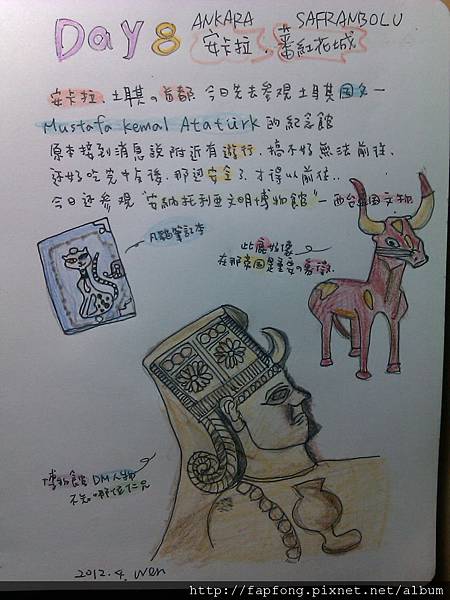 Day 8 ANKARA SAFRANBOLU
安卡拉, 蕃紅花城
安卡拉. 土耳其の首都. 今日先去參觀土耳其國父一
Mustafa Kemal Atatürk 的紀念館
原本接到消息說附近有遊行. 搞不好無法前往.
還好吃完午飯後. 那邊安全了. 才得以前往..
今日還參觀 "安納托利亞文明博物館" - 西台帝國文物
凡貓筆記本
此鹿好像
在那帝國是重要の象徵.
博物館 DM人物
不知哪位仁兄
2012.4. Wen
http://fapfong.pixnet.net/album